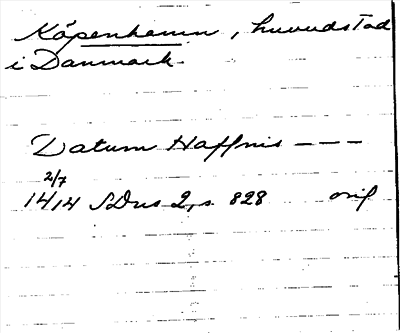 Köpenhamn, huvudstad
i Danmark.
Datum Haffnis ---
2/7
1414 SDns 2, s. 828 orig